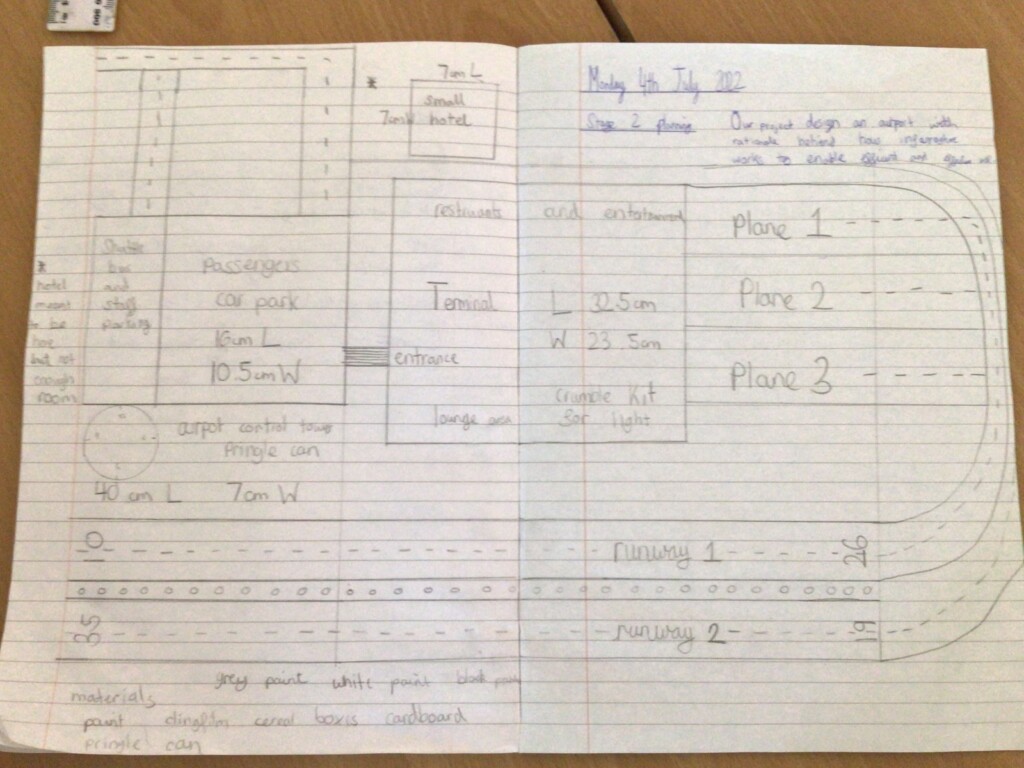 7cm L
small
7cm hotel
Monday 4th July 2022
Stage 2 planning
Our project design an airport with
rationale behind how
works to enable and
restruants and entertainment
Plane 1
Shuttle
bus
and
staff
parking
Passengers
car park
16cm L
10.5cm W
*
hotel
meant
to be
here
but not
enough
room
Terminal
L 32.5cm
W 23.5cm
Plane 2
entrance
Plane 3
crumble Kit
for light
lounge area
airpot control tower
Pringle can
40 cm L 7cm W
10
runway 1
26
35
runway 2
19
grey paint white paint black paint
materials
paint clingfilm cereal boxis cardboard
pringle can